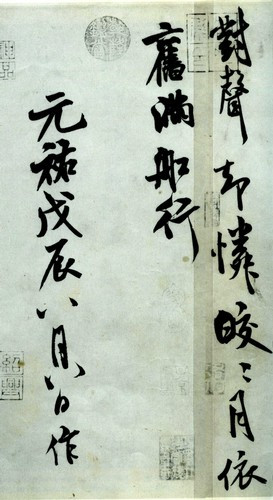 對聲却憐皎〻月依
舊滿船行
元祐戊辰八月八日作